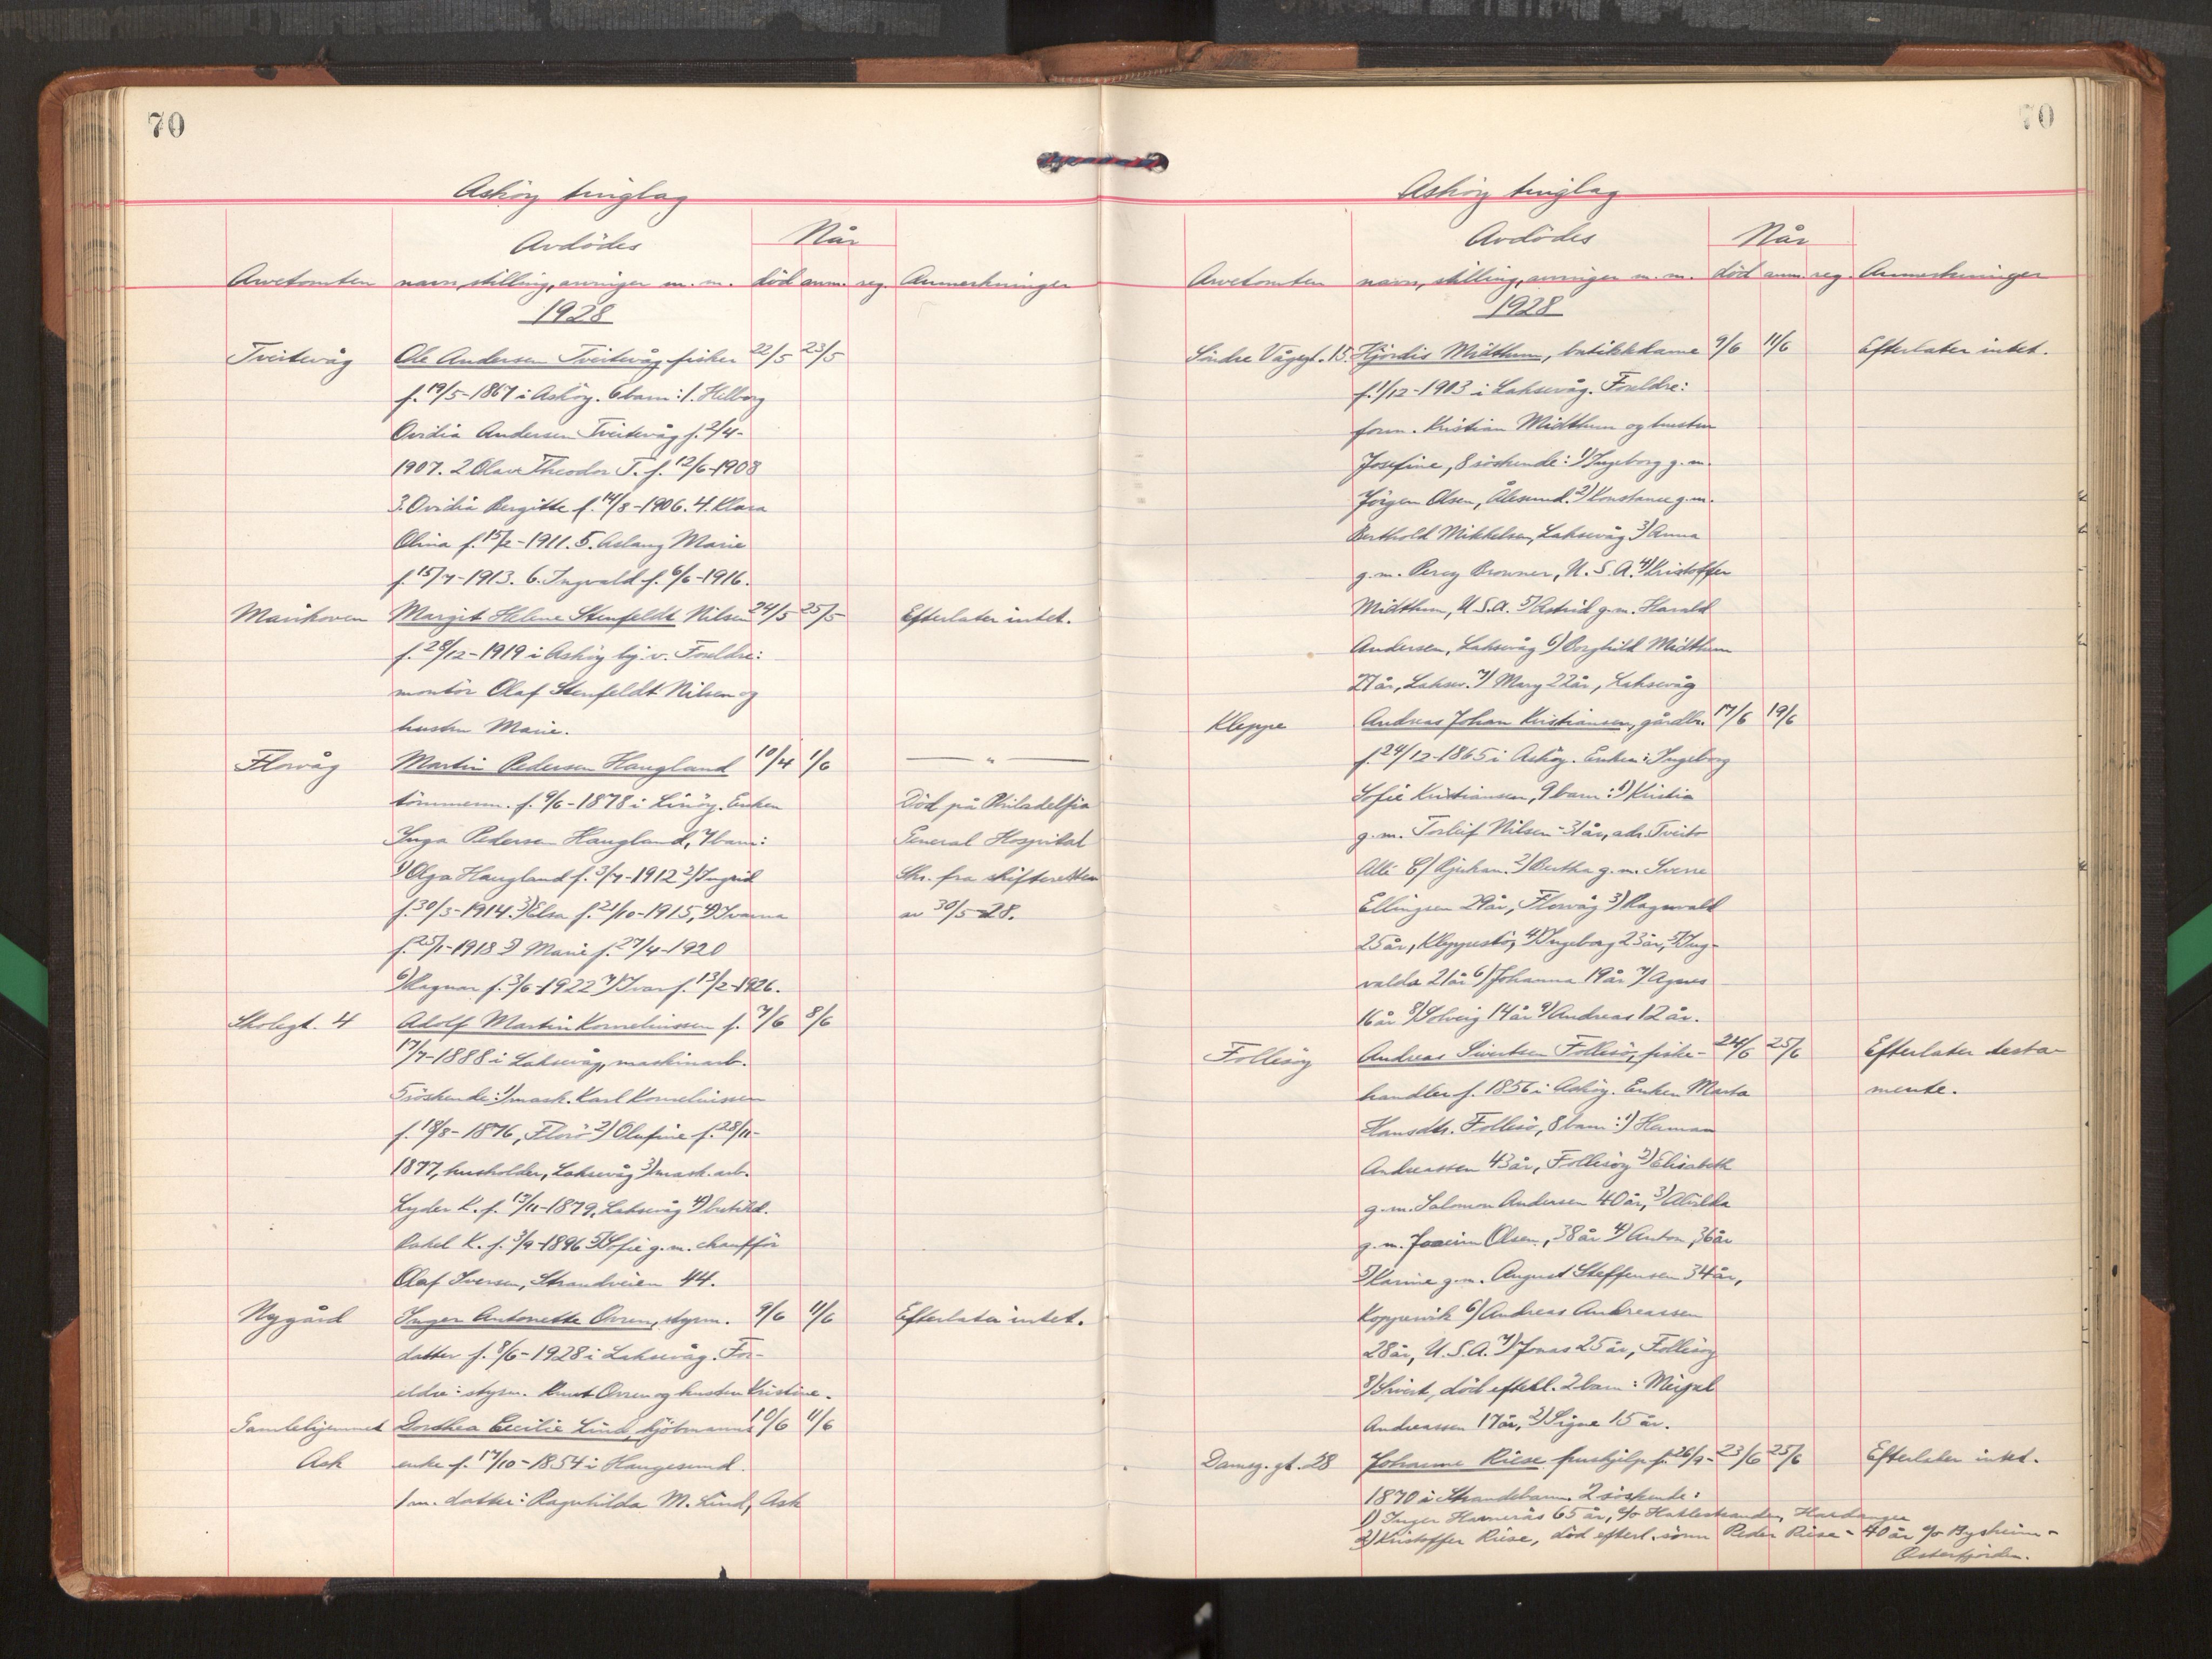 70
Askøy tinglag
Avdödes
Når
Arvetomten navn, stilling, arvinger m. m. död anm. reg. Anmerkninger
1928
Tveitevåg Ole Andersen Tveitevåg fisker 22/5 23/5
f. 19/5-1867 i Asköy. 6 barn: 1. Helborg
Ovidia Andersen Tveitevåg f. 2/4-
1907. 2 Olav Theodor T. f. 12/6-1908
3. Ovidia Bergitte f. 14/8-1906. 4. Klara
Olina f. 15/2-1911. 5. Aslaug Marie
f. 15/7-1913. 6. Ingvald f. 6/6-1916.
Marikoven Margit Helene Stenfeldt Nilsen 24/5 25/5 Efterlater intet.
f. 28/12-1919 i Asköy hj. v. Foreldre:
montör Olaf Stenfeldt Nilsen og
hustru Marie.
Florvåg Martin Pedersen Haugland 10/4 1/6 — " —
tömmerm. f. 9/6-1878 i Linöy. Enken Död på Philadelfia
Inga Pedersen Haugland, 7 barn: General Hospital
1) Olga Haugland f. 3/7-1912 2) Ingrid Skr. fra skifteretten
f. 30/3-1914. 3) Elsa f. 21/10-1915, 4) Ivarna av 30/5-28.
f. 25/1-1918 5) Marie f. 27/4-1920
6) Ragnar f. 3/6-1922 7) Ivar f. 13/2-1926.
Skolegt. 4 Adolf Martin Korneliussen f. 7/6 8/6
17/7-1888 i Laksevåg, maskinarb.
5 söskende: 1) mask. Karl Korneliussen
f. 18/8-1876, Florö 2) Olufine f. 28/11-
1877, husholder, Laksevåg 3) mask. arb.
Lyder K. f. 13/11-1879, Laksevåg 4) butikd.
Rakel K. f. 3/9-1896 5) Sofie g. m. chafför
Olaf Iversen, Strandveien 44.
Nygård Inger Antonette Ovren, styrm. 9/6 11/6 Efterlater intet.
datter f. 8/6-1928 i Laksevåg. For-
eldre: styrm. Knut Ovren og hustru Kristine.
Gamlehjemmet Dorthea Cecilie Lind, kjöbmanns 10/6 11/6
Ask enke f. 17/10-1854 i Haugesund.
1 m. datter: Ragnhilda M. Lind, Ask
70
Asköy tinglag
Avdödes
Når
Arvetomten navn, stilling, arvinger m. m. död anm. reg. Anmerkninger
1928
Söndre Vågegt. 15. Hjördis Midthun, butikkdame 9/6 11/6 Efterlater intet.
f. 1/12-1903 i Laksevåg. Foreldre:
form. Kristian Midthun og hustru
Josefine, 8 söskende: 1) Ingeborg g. m.
Jörgen Olsen, Ålesund. 2) Konstance g. m.
Berthold Mikkelsen, Laksevåg 3) Anna
g. m. Percy Brouner, U. S. A. 4) Kristoffer
Midthun, U. S. A. 5) Astrid g. m. Harald
Andersen, Laksevåg 6) Borghild Midthun
27 år, Laksev. 7) Mary 22 år, Laksevåg
Kleppe Andreas Johan Kristiansen, gårdbr. 17/6 19/6
f. 24/12-1865 i Asköy. Enken: Ingeborg
Sofie Kristiansen, 9 barn: 1) Kristia
g. m. Torleif Nilsen - 31 år, adr. Tveito
Allé 6/ Rjukan. 2) Bertha g. m. Sverre
Ellingsen 29 år, Florvåg 3) Ragnvald
25 år, Kleppestö, 4) Ingeborg 23 år, 5) Ing-
valda 21 år 6) Johanna 19 år 7) Agnes
16 år 8) Solveig 14 år 9) Andreas 12 år.
Follesöy Andreas Sivertsen Follesö, fiske- 24/6 25/6 Efterlater testa-
handler f. 1856 i Asköy. Enken Marta mente.
Hansdtr. Follesö, 8 barn: 1) Herman
Andreassen 43 år, Follesöy 2) Elisabeth
g. m. Salomon Andersen 40 år, 3) Alvilka
g. m. Joacim Olsen, 38 år 4) Anton, 36 år
5) Karine g. m. August Steffensen 34 år,
Koppervik 6) Andreas Andreassen
28 år, U. S. A. 7) Jonas 25 år, Follesöy
8) Sivert, död efterl. 2 barn:
Andreassen 17 år, 2) Signe 15 år.
Damsg. gt. 28 Johanne Riise hushjelp f. 26/9- 23/6 25/6 Efterlater intet.
1870 i Strandebarm. 2 söskende:
1) Inger Hamerås 65 år, c/o Hatlestranden, Hardanger
2) Kristoffer Riise, död efterl. sönn Peder Riise - 40 år c/o Bysheim -
Osterfjorden.